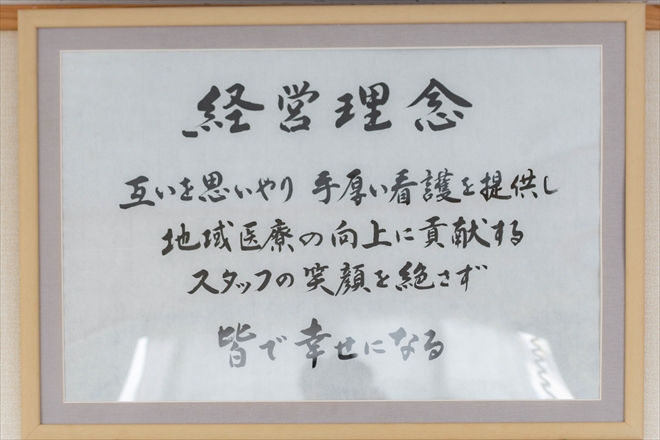 経営理念
互いを思いやり 手厚い看護を提供し
地域医療の向上に貢献する
スタッフの笑顔を絶さず
皆で幸せになる